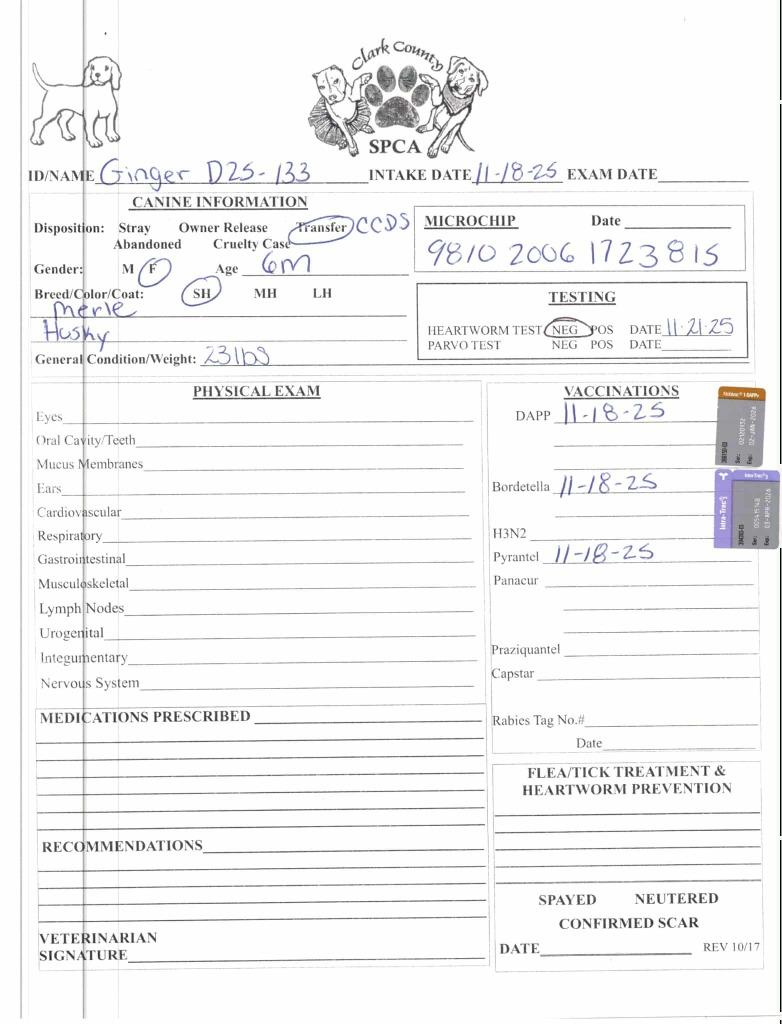 Clark County
SPCA
ID/NAME Ginger D25-133 INTAKE DATE 11-18-25 EXAM DATE
CANINE INFORMATION
Disposition: Stray Owner Release Transfer CCDS
Abandoned Cruelty Case
Gender: M F Age 6m
Breed/Color/Coat: SH MH LH
Merle
Husky
General Condition/Weight: 23lbs
MICROCHIP Date
9810 2006 1723815
TESTING
HEARTWORM TEST NEG POS DATE 11-21-25
PARVO TEST NEG POS DATE
PHYSICAL EXAM
Eyes
Oral Cavity/Teeth
Mucus Membranes
Ears
Cardiovascular
Respiratory
Gastrointestinal
Musculoskeletal
Lymph Nodes
Urogenital
Integumentary
Nervous System
VACCINATIONS
DAPP 11-18-25
Bordetella 11-18-25
H3N2
Pyrantel 11-18-25
Panacur
Praziquantel
Capstar
Rabies Tag No.#
Date
MEDICATIONS PRESCRIBED
RECOMMENDATIONS
VETERINARIAN
SIGNATURE
FLEA/TICK TREATMENT &
HEARTWORM PREVENTION
SPAYED NEUTERED
CONFIRMED SCAR
DATE REV 10/17